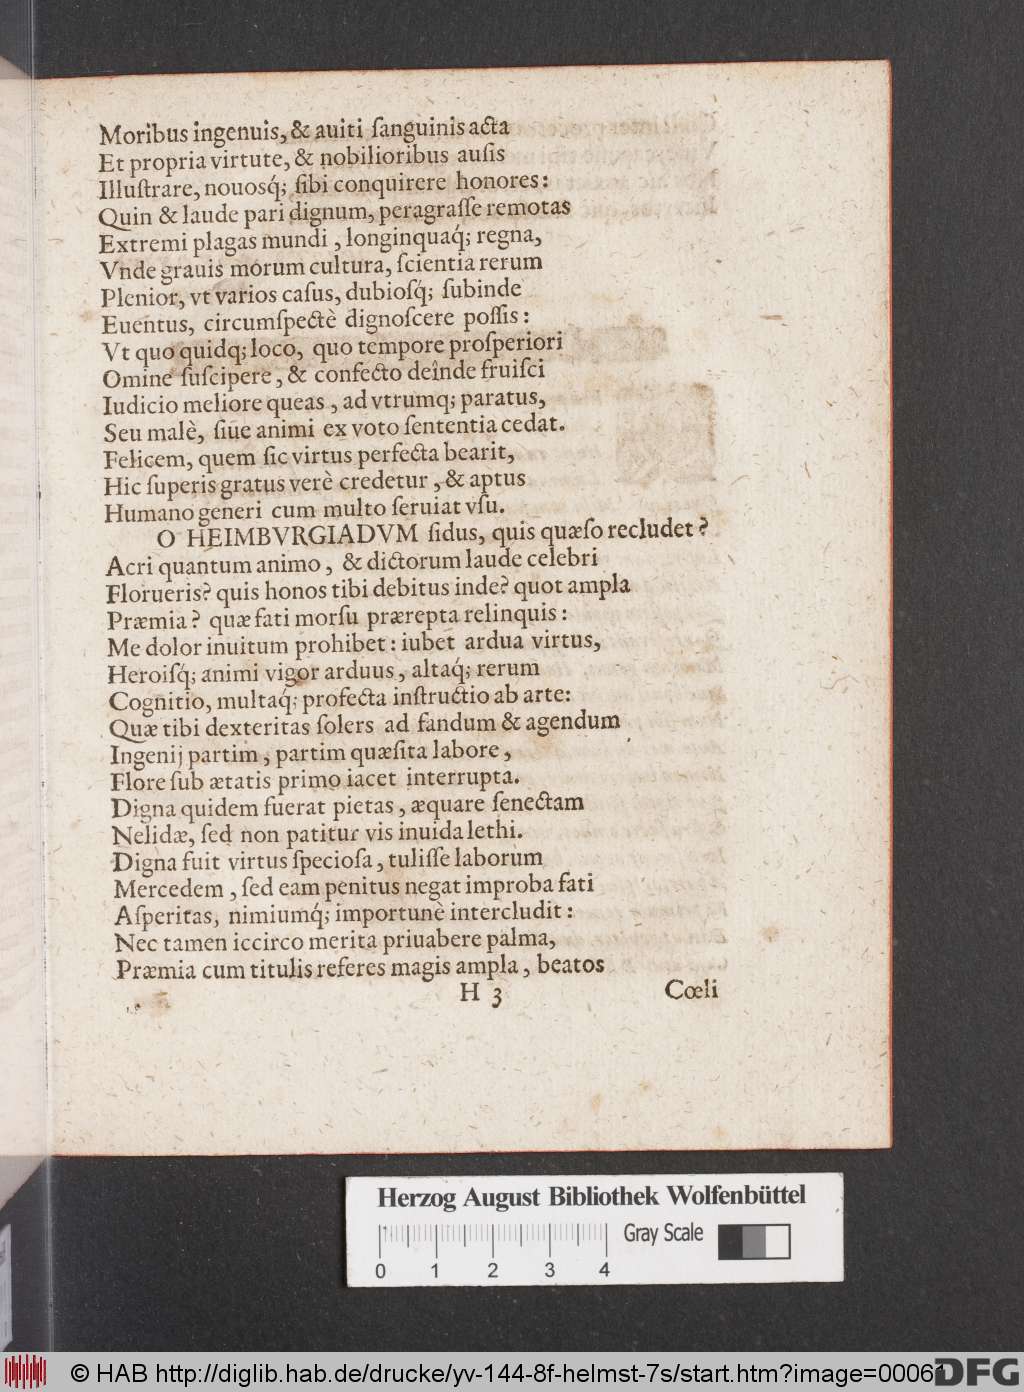 Moribus ingenuis, & auiti ſanguinis acta
Et propria virtute, & nobilioribus auſis
Illuſtrare, nouosq́; ſibi conquirere honores:
Quin & laude pari dignum, peragraſſe remotas
Extremi plagas mundi, longinquaq́; regna,
Vnde grauis morum cultura, ſcientia rerum
Plenior, vt varios caſus, dubioſq́; ſubinde
Euentus, circumſpectè dignoſcere poſſis:
Vt quo quidq; loco, quo tempore proſperiori
Omine ſuſcipere, & confecto deînde fruiſci
Iudicio meliore queas, ad vtrumq; paratus,
Seu malè, ſiue animi ex voto ſententia cedat.
Felicem, quem ſic virtus perfecta bearit,
Hic ſuperis gratus verè credetur, & aptus
Humano generi cum multo ſeruiat vſu.
O HEIMBVRGIADVM ſidus, quis quæſo recludet?
Acri quantum animo, & dictorum laude celebri
Florueris? quis honos tibi debitus inde? quot ampla
Præmia? quæ fati morſu prærepta relinquis:
Me dolor inuitum prohibet: iubet ardua virtus,
Heroiſq́; animi vigor arduus, altaq́; rerum
Cognitio, multaq́; profecta inſtructio ab arte:
Quæ tibi dexteritas ſolers ad fandum & agendum
Ingenij partim, partim quæſita labore,
Flore ſub ætatis primo iacet interrupta.
Digna quidem fuerat pietas, æquare ſenectam
Nelidæ, ſed non patitur vis inuida lethi.
Digna fuit virtus ſpecioſa, tuliſſe laborum
Mercedem, ſed eam penitus negat improba fati
Aſperitas, nimiumq́; importunè intercludit:
Nec tamen iccirco merita priuabere palma,
Præmia cum titulis referes magis ampla, beatos
H 3 Cœli
Herzog August Bibliothek Wolfenbüttel
Gray Scale
0 1 2 3 4
© HAB http://diglib.hab.de/drucke/yv-144-8f-helmst-7s/start.htm?image=00061
DFG